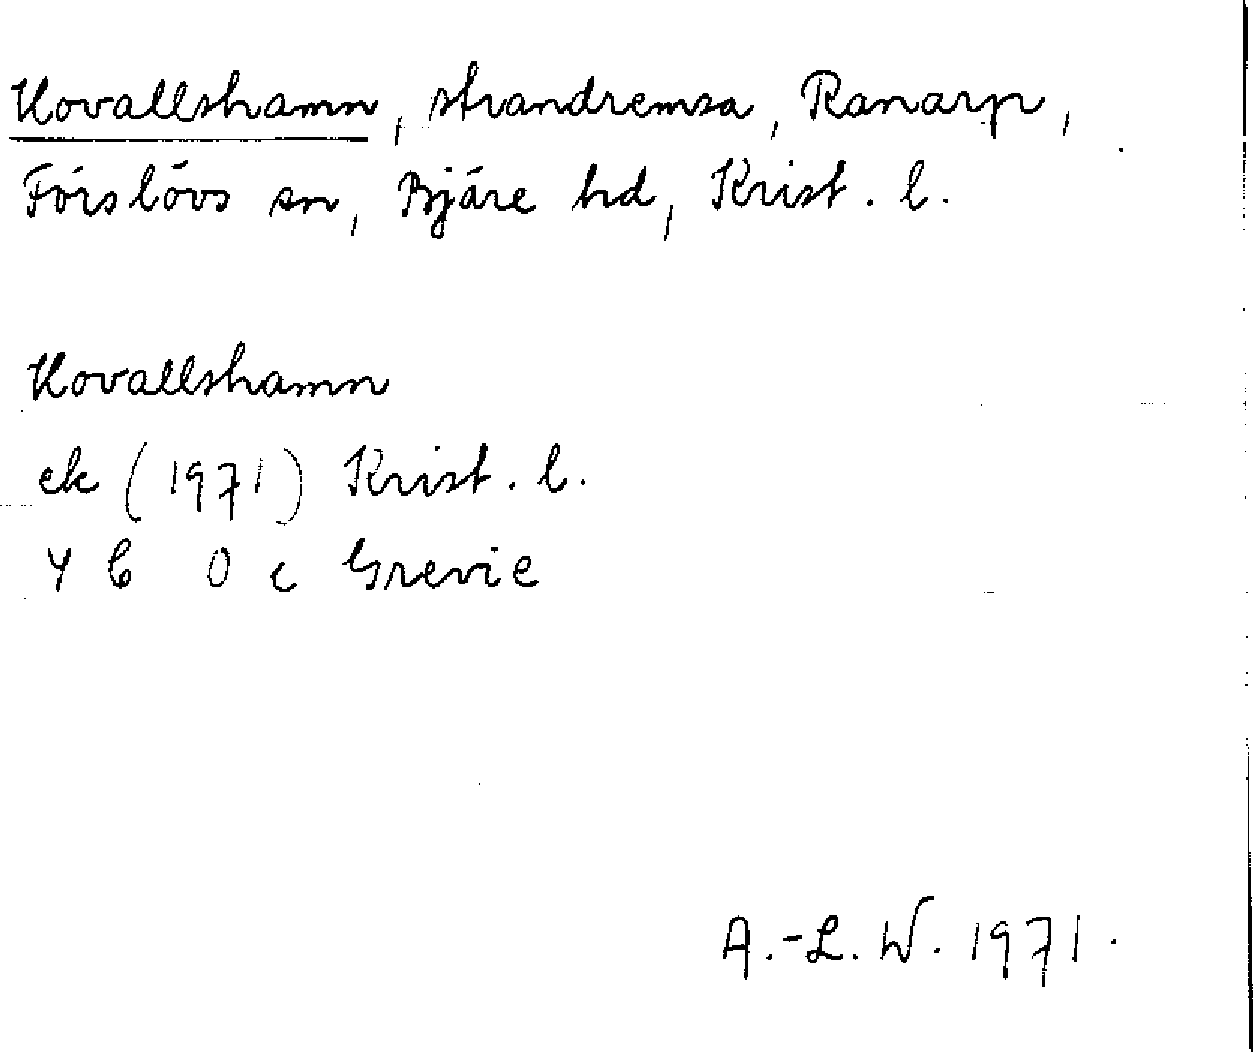 Kovallshamn, strandremsa, Ranarp,
Förslövs sn, Bjäre hd, Krist. l.
Kovallshamn
ek (1971) Krist. l.
4 C 0 c Grevie
A.-L. W. 1971.